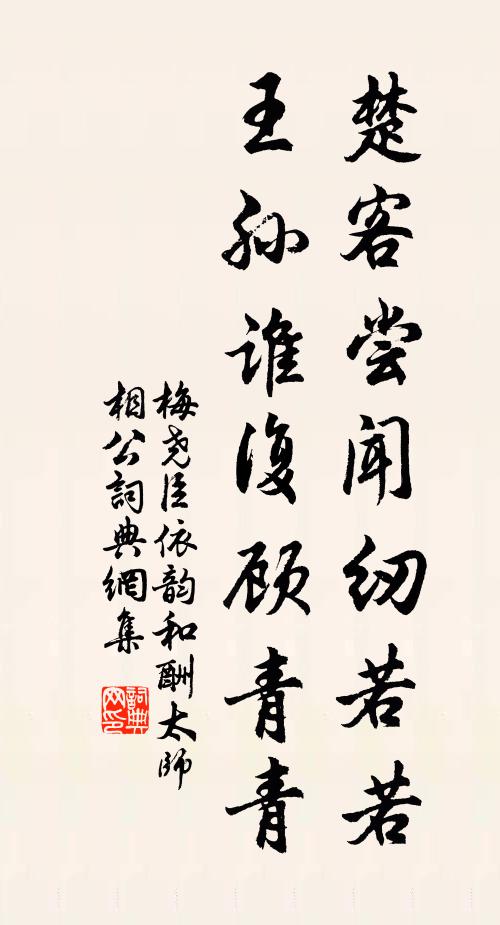 楚客尝闻纫若若
王孙谁复顾青青
梅尧臣依韵和酬太师
相公詞典網集
詞典网印